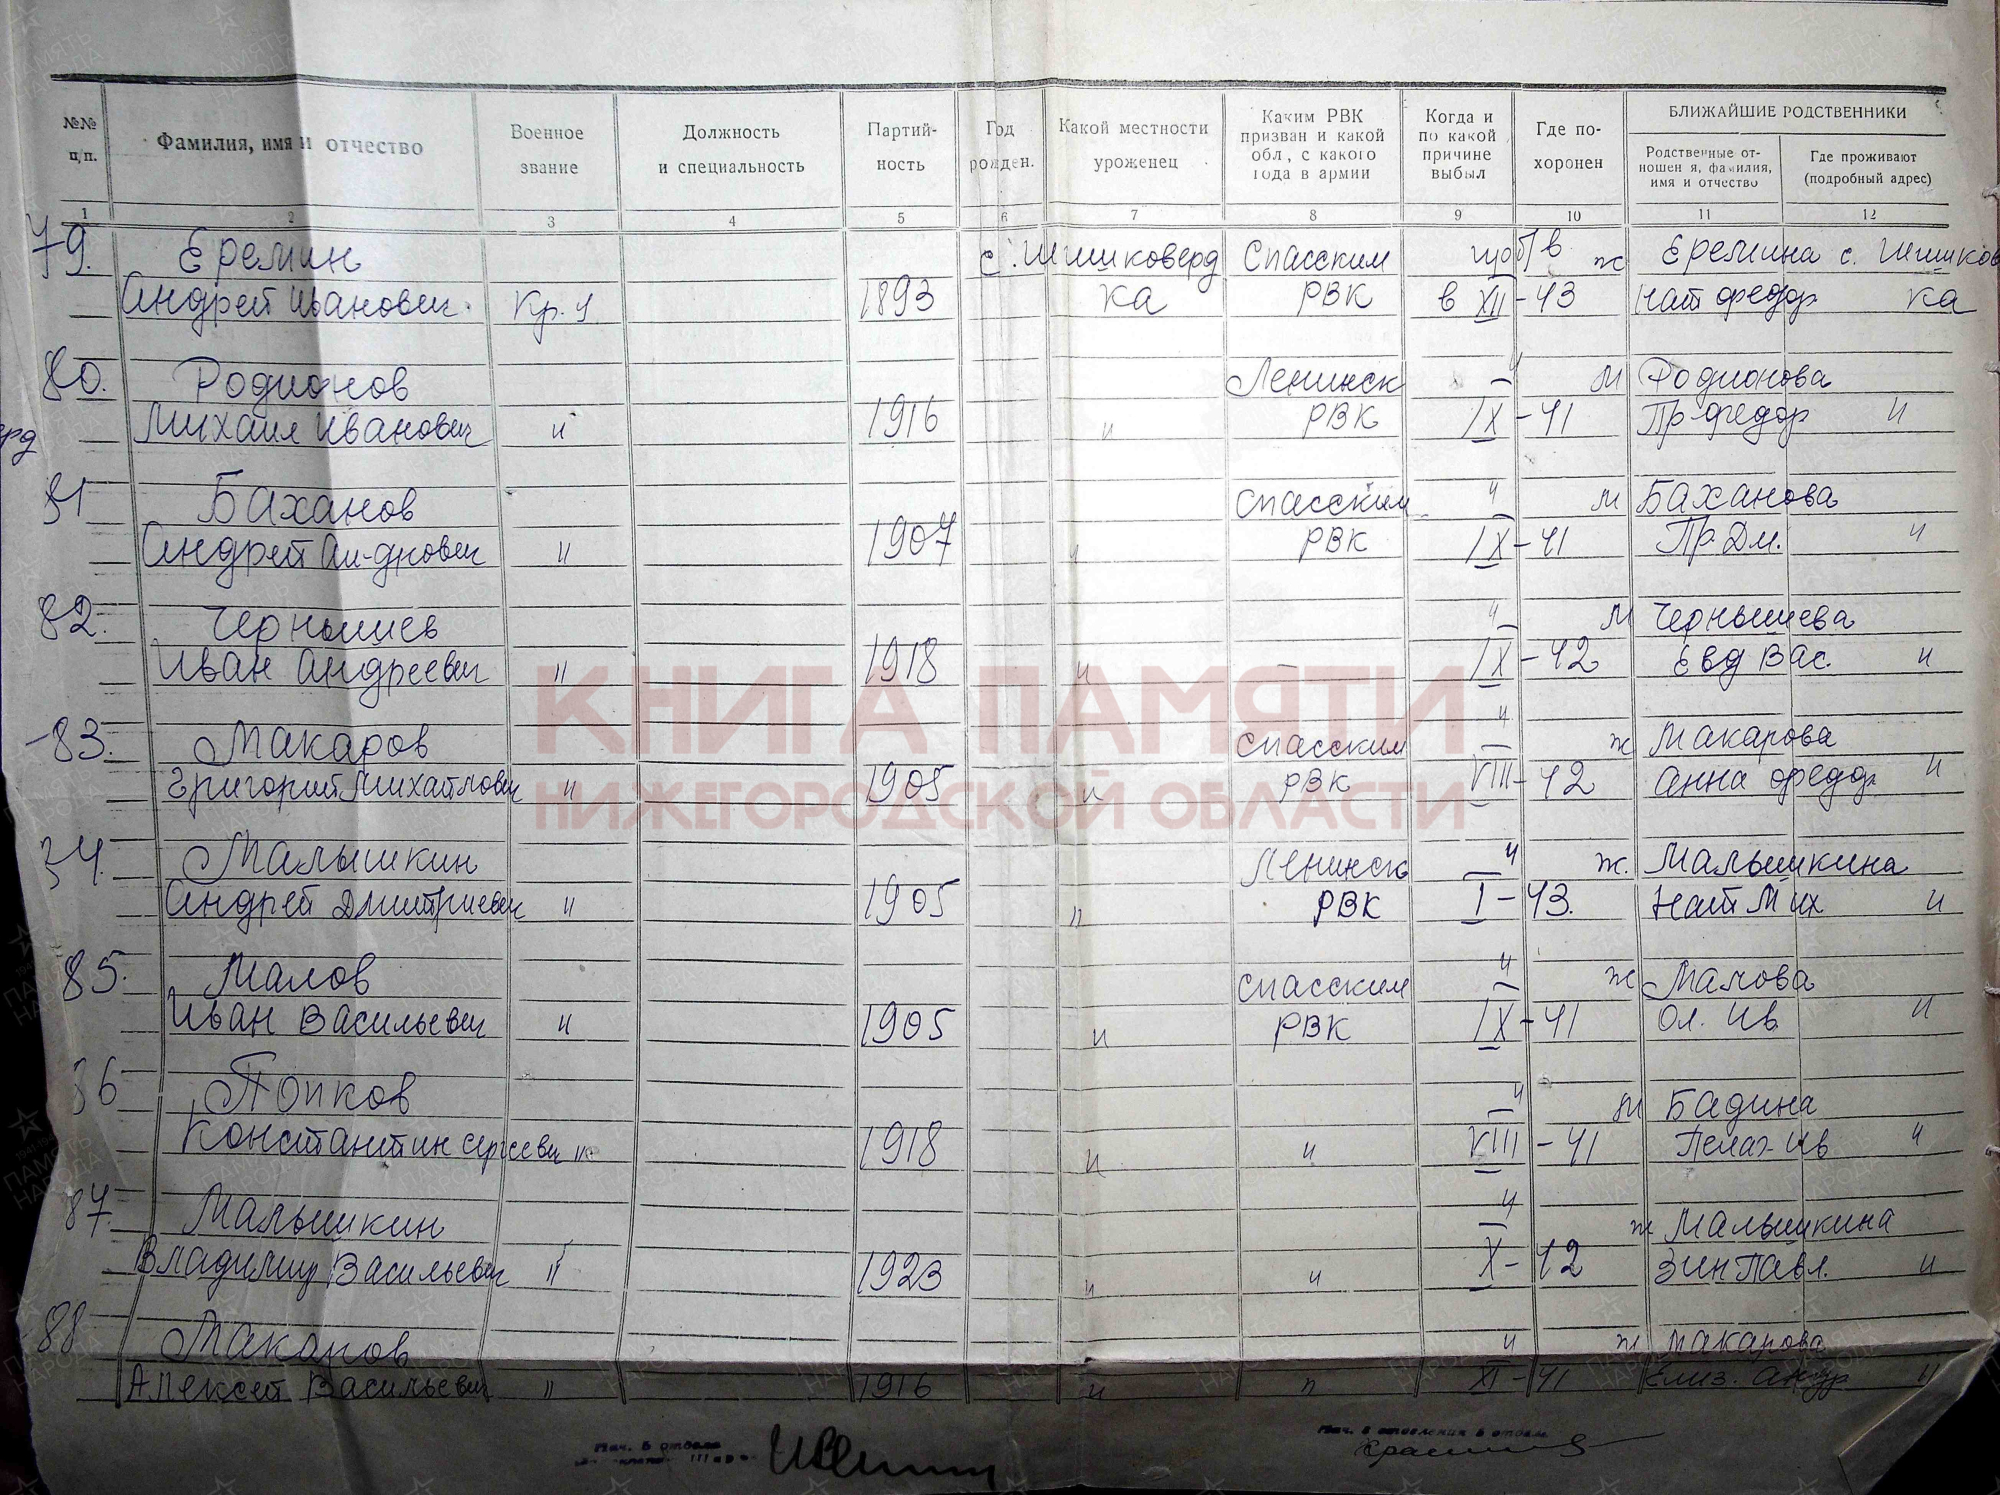 №№ п/п.
Фамилия, имя и отчество
Военное звание
Должность и специальность
Партий-ность
Год рожден.
Какой местности уроженец
Каким РВК призван и какой обл., с какого года в армии
Когда и по какой причине выбыл
Где по-хоронен
БЛИЖАЙШИЕ РОДСТВЕННИКИ
Родственные от-ношен я, фамилия, имя и отчество
Где проживают (подробный адрес)
1 2 3 4 5 6 7 8 9 10 11 12
79. Еремин с. Шишковерд Спасским ж Еремина с. Шишков
Андрей Иванович 1893 ка РВК в XII-43 Нат Федор ка
80. Родионов Ленинск " м Родионова
Михаил Иванович " 1916 " РВК IX-41 Пр Федор "
81 Баханов Спасским " м Баханова
Андрей " 1907 " РВК IX-41 Пр. Дм. "
82. Чернышев " м Чернышева
Иван Андреевич " 1918 " — IX-42 Евд Вас. "
83. Макаров Спасским " ж Макарова
Григорий Михайлович " 1905 " РВК VIII-42 Анна Федор "
КНИГА ПАМЯТИ
НИЖЕГОРОДСКОЙ ОБЛАСТИ
84. Малышкин Ленинск " ж. Малышкина
Андрей Дмитриевич " 1905 " РВК I-43. Нат Мих "
85. Малов Спасским " ж Малова
Иван Васильевич " 1905 " РВК IX-41 Ол. Ив "
86 Попков " м Бадина
Константин Сергеевич " 1918 " " VIII-41 Пелаг Ив "
87. Малышкин " ж Малышкина
Владимир Васильевич " 1923 " " X-42 Зин Павл. "
88 Макаров " ж Макарова
Алексей Васильевич " 1916 " " XI-41 Елиз. Андр "
Нач. 6 отдела
Нач. 2 отделения 6 отдела